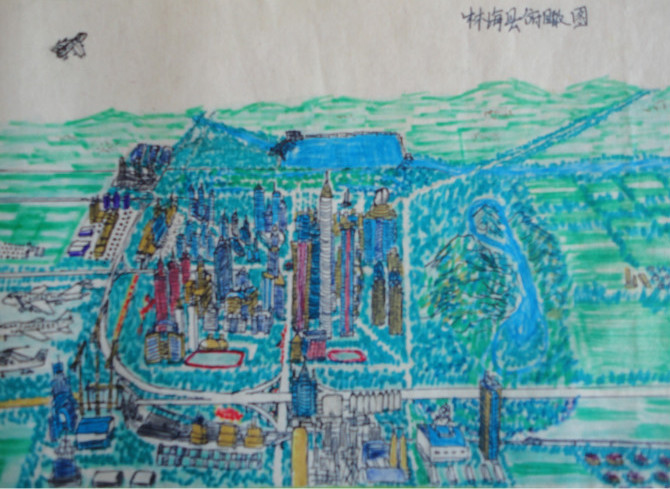 林海县俯瞰图